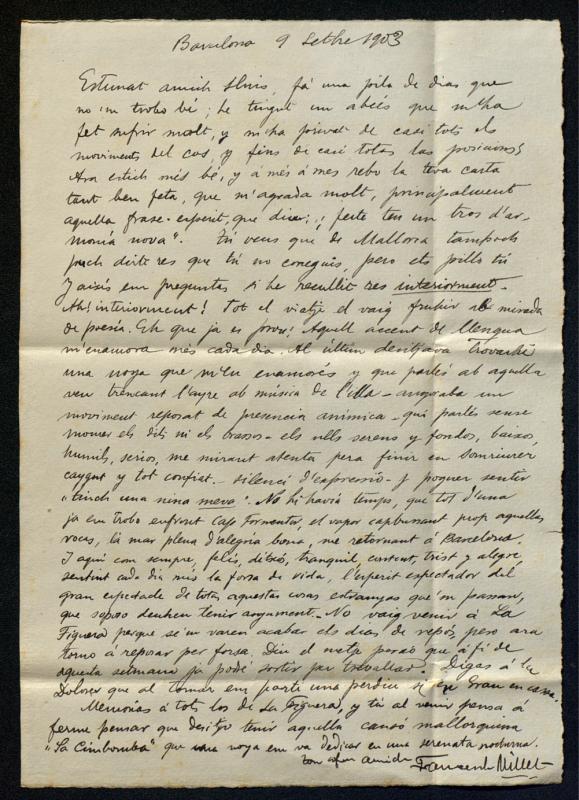 Barcelona 9 Setbre 1903
Estimat amich Lluis, fá una pila de dias que
no 'm trobo bé; he tingut un abcés que m'ha
fet sufrir molt, y m'ha privat de casi tots els
moviments del cos, y fins de casi totas las posicions;
Ara estich més bé, y a més á mes rebo la teva carta
tant ben feta, que m'agrada molt, principalment
aquella frase-esperit, que diu: ¡feste ten un tros d'ar-
monía nova". Tú veus que de Mallorca tampoch
puch dirte res que tú no coneguis, pero ets pillo tú
y aixís em preguntas si he recullit res interiorment-
Ah! interiorment! Tot el viatje el vaig fruhir ab mirada
de poesía. Eh que ja es prou! Aquell accent de llengua
m'enamora més cada dia. Al últim desitjava trovarhi
una noya que m'en enamorés y que parlés ab aquella
veu trencant l'ayre ab música de l'illa - anyoraba un
moviment reposat de presencia animica - qui parlés sense
mourer els dits ni els brassos - els ulls serens y fondos, baixos,
humils, serios, me mirant atenta pera finir en somriurer
caygut y tot confiat. - silenci d'expressió - y poguer sentir
"tinch una nina meva". No hi havia temps, que tot d'una
ja em trobo enfront Cap Formentor, el vapor capbussant prop aquellas
rocas, la mar plena d'alegría bona, me retornant á Barcelona.
I aquí com sempre, felís, ditxós, tranquil, content, trist y alegre
sentint cada dia més la forsa de vida, l'esperit espectador del
gran espectacle de totas aquestas cosas estranyas que 'm passan,
que suposo deuhen tenir argument. - No vaig venir á La
Figuera perque se 'm varen acabar els dias de repós, pero ara
torno á reposar per forsa. Diu el metje peraó que á fi de
aquesta setmana ja podré sortir per trevallar. Digas á la
Dolors que al tornar em porti una perdiu
Memorias á tots los de La Figuera, y tú al venir pensa á
ferme pensar que desitjo tenir aquella cansó mallorquina
"La Cimbomba" que una noya em va dedicar en una serenata nocturna.
ton afm amich Francesch Millet